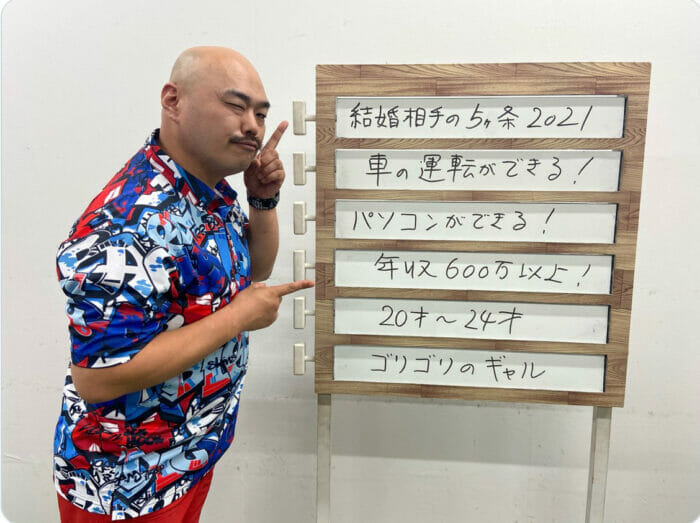 結婚相手の5ヶ条2021
車の運転ができる!
パソコンができる!
年収600万以上!
20才〜24才
ゴリゴリのギャル